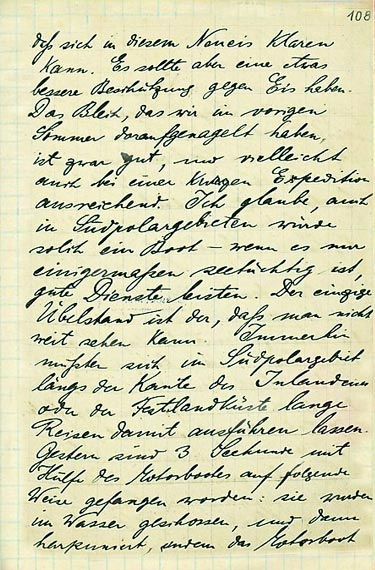 108
daß sich in diesem Neueis klaren
kann. Es sollte aber eine etwas
bessere Beschützung gegen Eis haben.
Das Blech, das wir im vorigen
Sommer daraufgenagelt haben,
ist zwar gut, und vielleicht
auch bei einer kurzen Expedition
ausreichend. Ich glaube, auch
in Südpolargebieten würde
solch ein Boot – wenn es nur
einigermaßen seetüchtig ist,
gute Dienste leisten. Der einzige
Übelstand ist der, daß man nicht
weit sehen kann. Immerhin
müßten sich im Südpolargebiet
längs der Kante des Inlandeises
oder der Festlandküste lange
Reisen damit ausführen lassen.
Gestern sind 3 Seehunde mit
Hülfe des Motorbootes auf folgende
Weise gefangen worden: sie wurden
im Wasser geschossen, und dann
harpuniert, indem das Motorboot